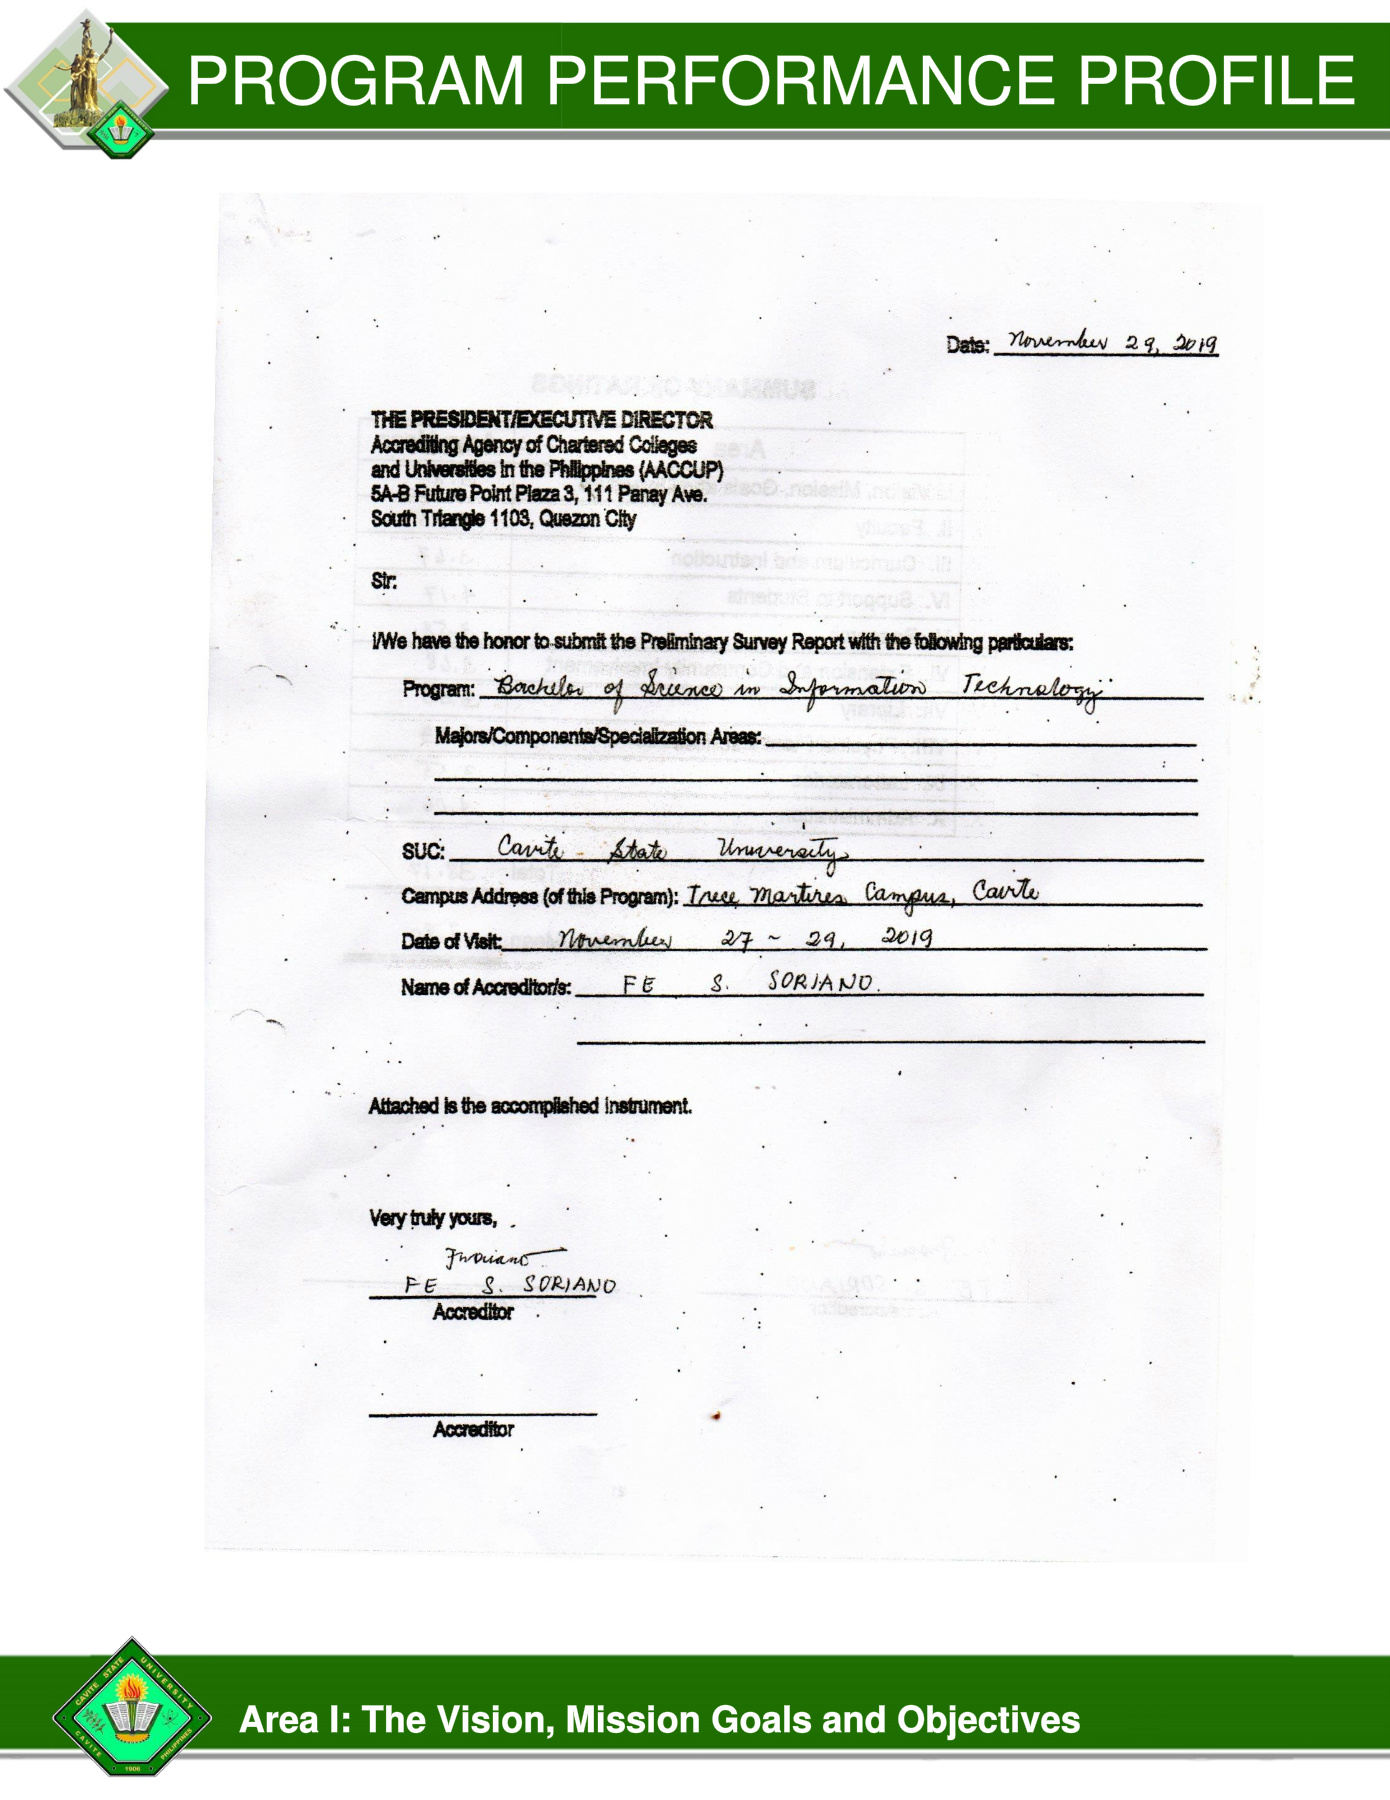 PROGRAM PERFORMANCE PROFILE
Date: November 29, 2019
THE PRESIDENT/EXECUTIVE DIRECTOR
Accrediting Agency of Chartered Colleges
and Universities in the Philippines (AACCUP)
5A-B Future Point Plaza 3, 111 Panay Ave.
South Triangle 1103, Quezon City
Sir:
I/We have the honor to submit the Preliminary Survey Report with the following particulars:
Program: Bachelor of Science in Information Technology
Majors/Components/Specialization Areas:
SUC: Cavite State University
Campus Address (of this Program): Trece Martires Campus, Cavite
Date of Visit: November 27 - 29, 2019
Name of Accreditor/s: FE S. SORIANO
Attached is the accomplished instrument.
Very truly yours,
FE S. SORIANO
Accreditor
Accreditor
CAVITE STATE UNIVERSITY
CAVITE PHILIPPINES
1906
Area I: The Vision, Mission Goals and Objectives